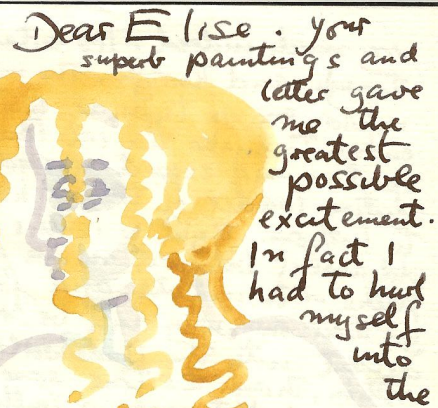 Dear Elise. Your
superb paintings and
letter gave
me the
greatest
possible
excitement.
In fact I
had to hurl
myself
into
the